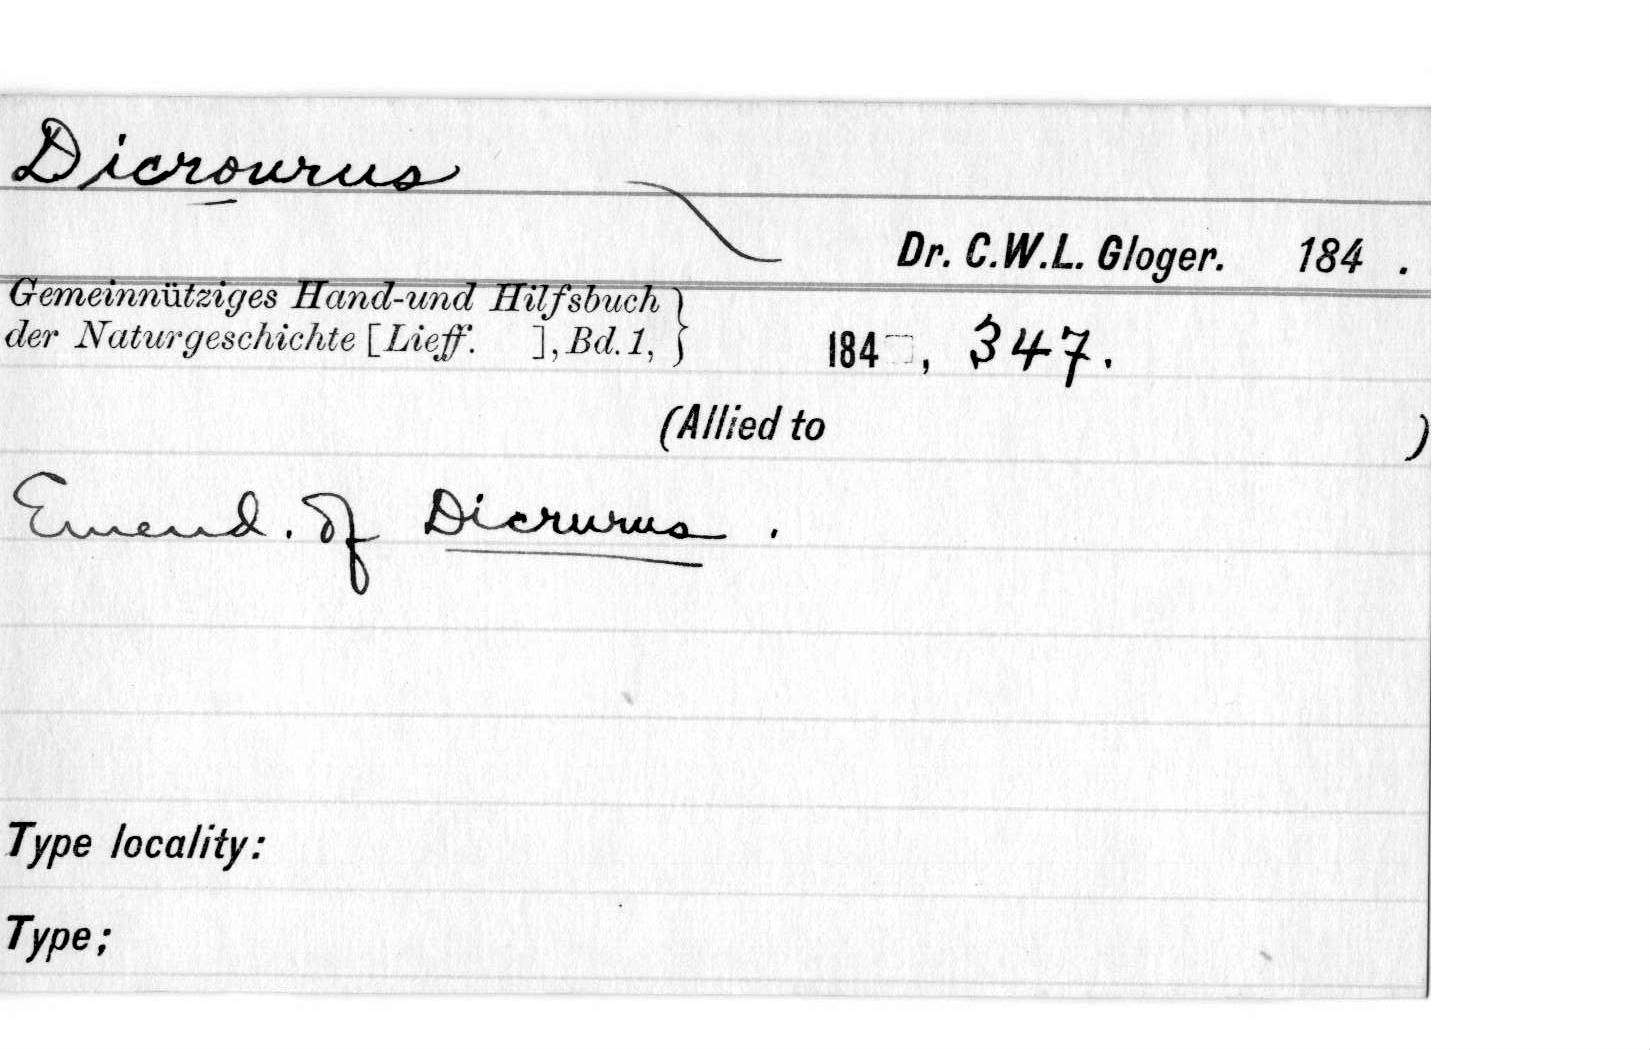 Dicrourus
Dr. C.W.L. Gloger. 184 .
Gemeinnütziges Hand-und Hilfsbuch
der Naturgeschichte [Lieff. ], Bd. 1, } 184 , 347.
(Allied to )
Emend. of Dicrurus .
Type locality:
Type;